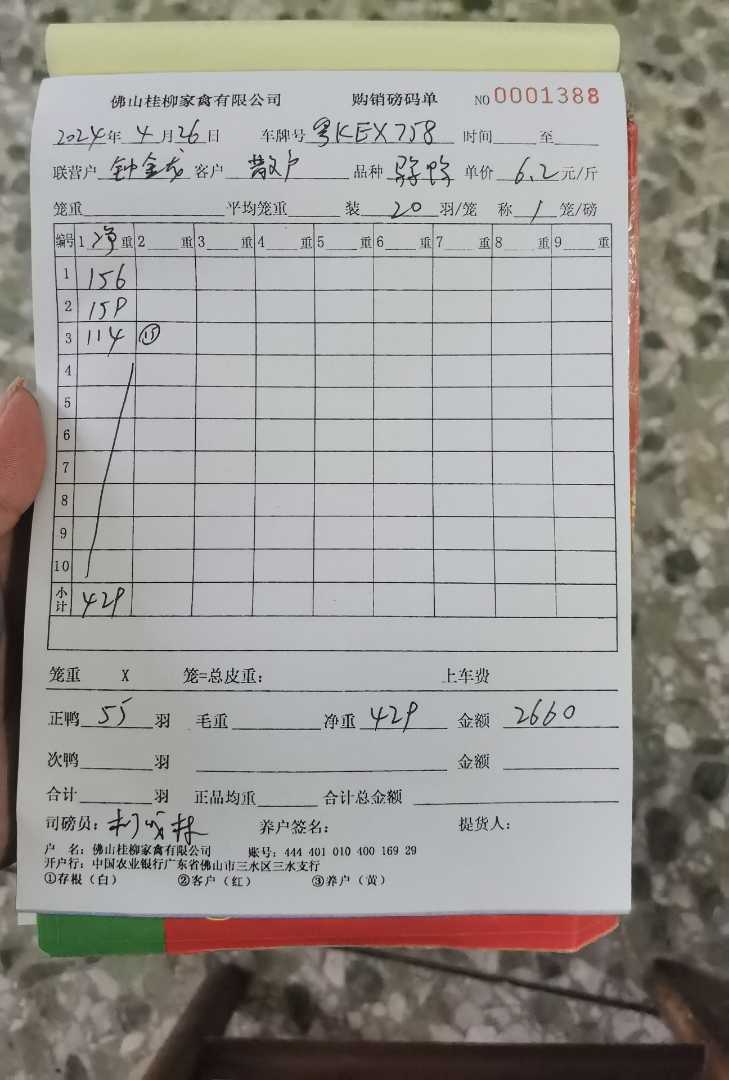 佛山桂柳家禽有限公司 购销磅码单 NO 0001388
2024年 4月26日 车牌号 粤KEX758 时间 至
联营户 钟金龙 客户 散户 品种 单价 6.2元/斤
笼重 平均笼重 装 20 羽/笼 称 1 笼/磅
编号 1 净重 2 重 3 重 4 重 5 重 6 重 7 重 8 重 9 重
1 156
2 159
3 114 ⑮
4
5
6
7
8
9
10
小计 429
笼重 X 笼=总皮重: 上车费
正鸭 55 羽 毛重 净重 429 金额 2660
次鸭 羽 金额
合计 羽 正品均重 合计总金额
司磅员: 养户签名: 提货人:
户 名: 佛山桂柳家禽有限公司 账号: 444 401 010 400 169 29
开户行: 中国农业银行广东省佛山市三水区三水支行
①存根(白) ②客户(红) ③养户(黄)